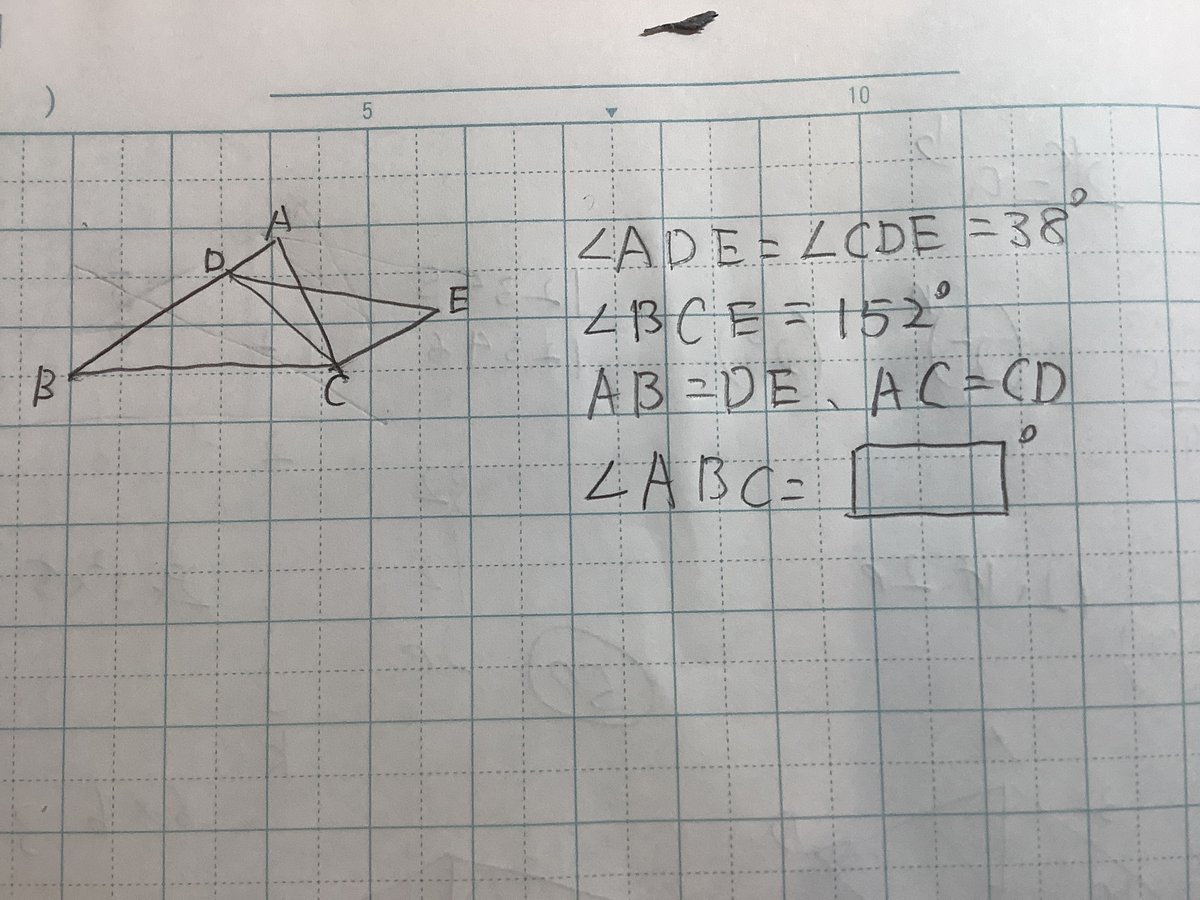 )
5
10
A
D
E
B
C
∠ADE=∠CDE=38°
∠BCE=152°
AB=DE、AC=CD
∠ABC=□°